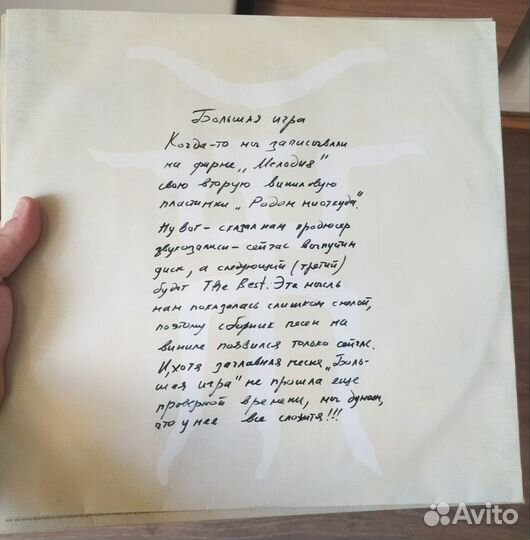 Большая игра
Когда-то мы записывали
на фирме „Мелодия"
свою вторую виниловую
пластинки „Родом ниоткуда".
Ну вот - сказал нам продюсер
звукозаписи - сейчас выпустим
диск, а следующий (третий)
будет The Best. Эта мысль
нам показалась слишком смелой,
поэтому сборник песен на
виниле появился только сейчас.
И хотя заглавная песня „Боль-
шая игра" не прошла еще
проверкой времени, мы думаем,
что у нее все сложится!!!
Avito